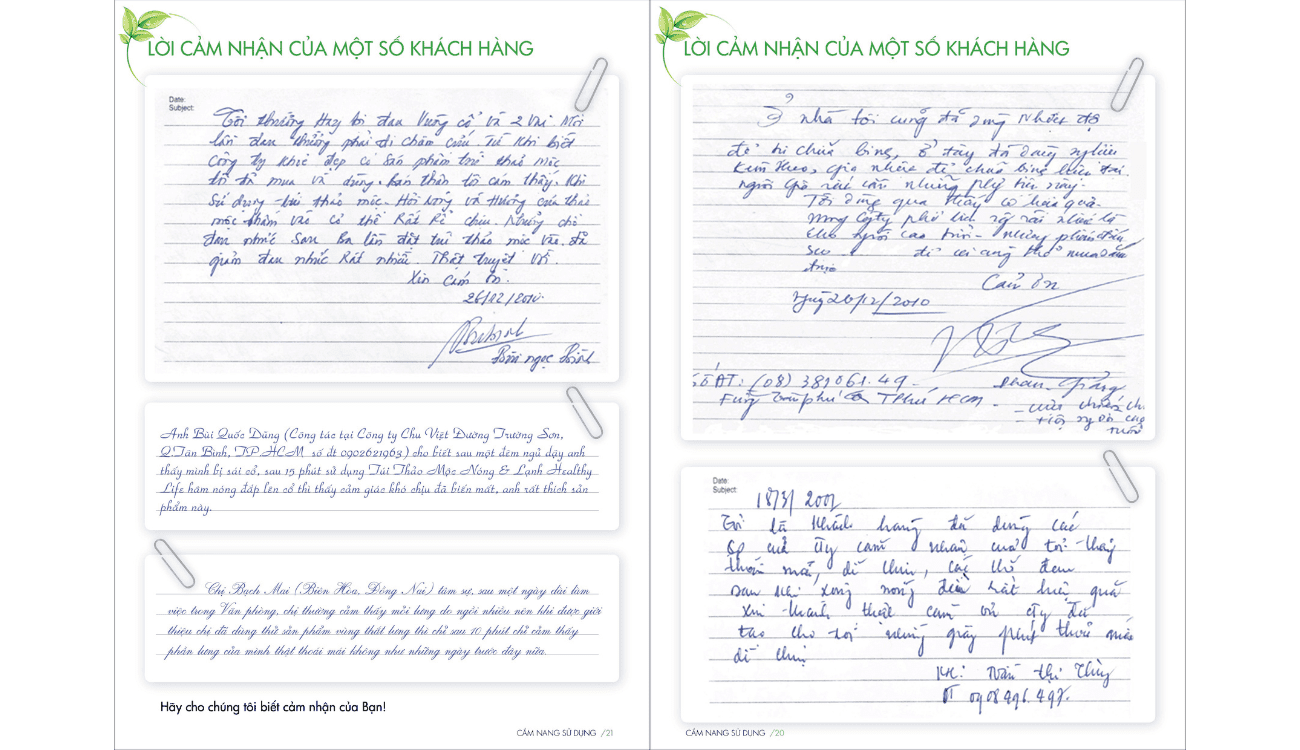 LỜI CẢM NHẬN CỦA MỘT SỐ KHÁCH HÀNG
Date:
Subject:
Tôi thường Hay bị đau Vương cổ và 2 Vai Mỗi
lần đau thường phải đi Châm cứu. Từ Khi biết
Công ty Khoẻ đẹp có Sản phẩm túi thảo mộc
tôi đã mua về dùng. bản thân tôi cảm thấy. Khi
Sử dụng túi thảo mộc. Hơi nóng và Hương của thảo
mộc thấm vào cơ thể Rất Rễ chịu. Những chỗ
đau nhức Sau Ba lần đặt túi thảo mộc vào. đã
giảm đau nhức Rất nhiều. Thật tuyệt vời.
Xin Cám ơn.
26/12/2010.
Bùi ngọc Bình
Anh Bùi Quốc Dũng (Công tác tại Công ty Chu Việt Đường Trường Sơn,
Q.Tân Bình, TP.HCM số đt 0902621963) cho biết sau một đêm ngủ dậy anh
thấy mình bị sái cổ, sau 15 phút sử dụng Túi Thảo Mộc Nóng & Lạnh Healthy
Life hâm nóng đắp lên cổ thì thấy cảm giác khó chịu đã biến mất, anh rất thích sản
phẩm này.
Chị Bạch Mai (Biên Hòa, Đồng Nai) tâm sự, sau một ngày dài làm
việc trong Văn phòng, chị thường cảm thấy mỏi lưng do ngồi nhiều nên khi được giới
thiệu chị đã dùng thử sản phẩm vùng thắt lưng thì chỉ sau 10 phút chị cảm thấy
phần lưng của mình thật thoải mái không như những ngày trước đây nữa.
Hãy cho chúng tôi biết cảm nhận của Bạn!
CẨM NANG SỬ DỤNG /21
LỜI CẢM NHẬN CỦA MỘT SỐ KHÁCH HÀNG
Ở nhà tôi cũng đã dùng nhiều
để trị chữa bệnh, Ở đây đã dùng
Tôi dùng qua thấy có hiệu quả.
mong Cty phổ biến rộng rãi nhất là
cho người cao tuổi
Cảm ơn
Ngày 26/12/2010
Số ĐT: (08) 381061.49
Phan Giảng
Date:
Subject:
18/3/2001
Tôi là khách hàng đã dùng các
sp của cty cảm nhận của tôi thấy
thoải mái, dễ chịu, các chỗ đau
sau khi xông nóng đều hết hiệu quả
xin thành thật cảm ơn cty đã
tạo cho tôi những giây phút thoải mái
dễ chịu
KH: Trần thị Thùy
ĐT 0908496.497.
CẨM NANG SỬ DỤNG /20